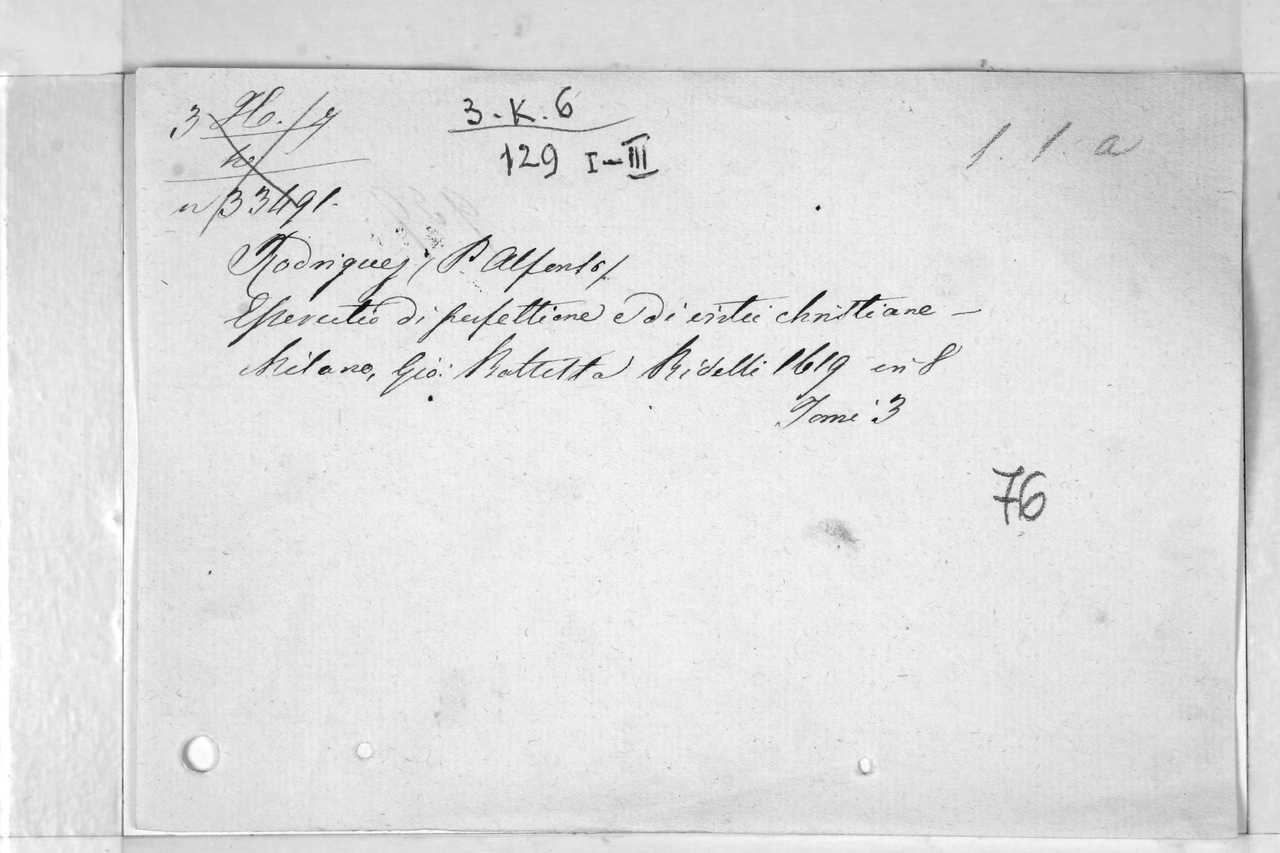 3 Ho. / 7
n 33491.
3.K.6
129 I-III
1. 1. a
Rodriguez / P. Alfonso /
Esercitio di perfettione e di virtù christiane -
Milano, Gio: Battista Bidelli 1619 in 8
Tomi 3
76